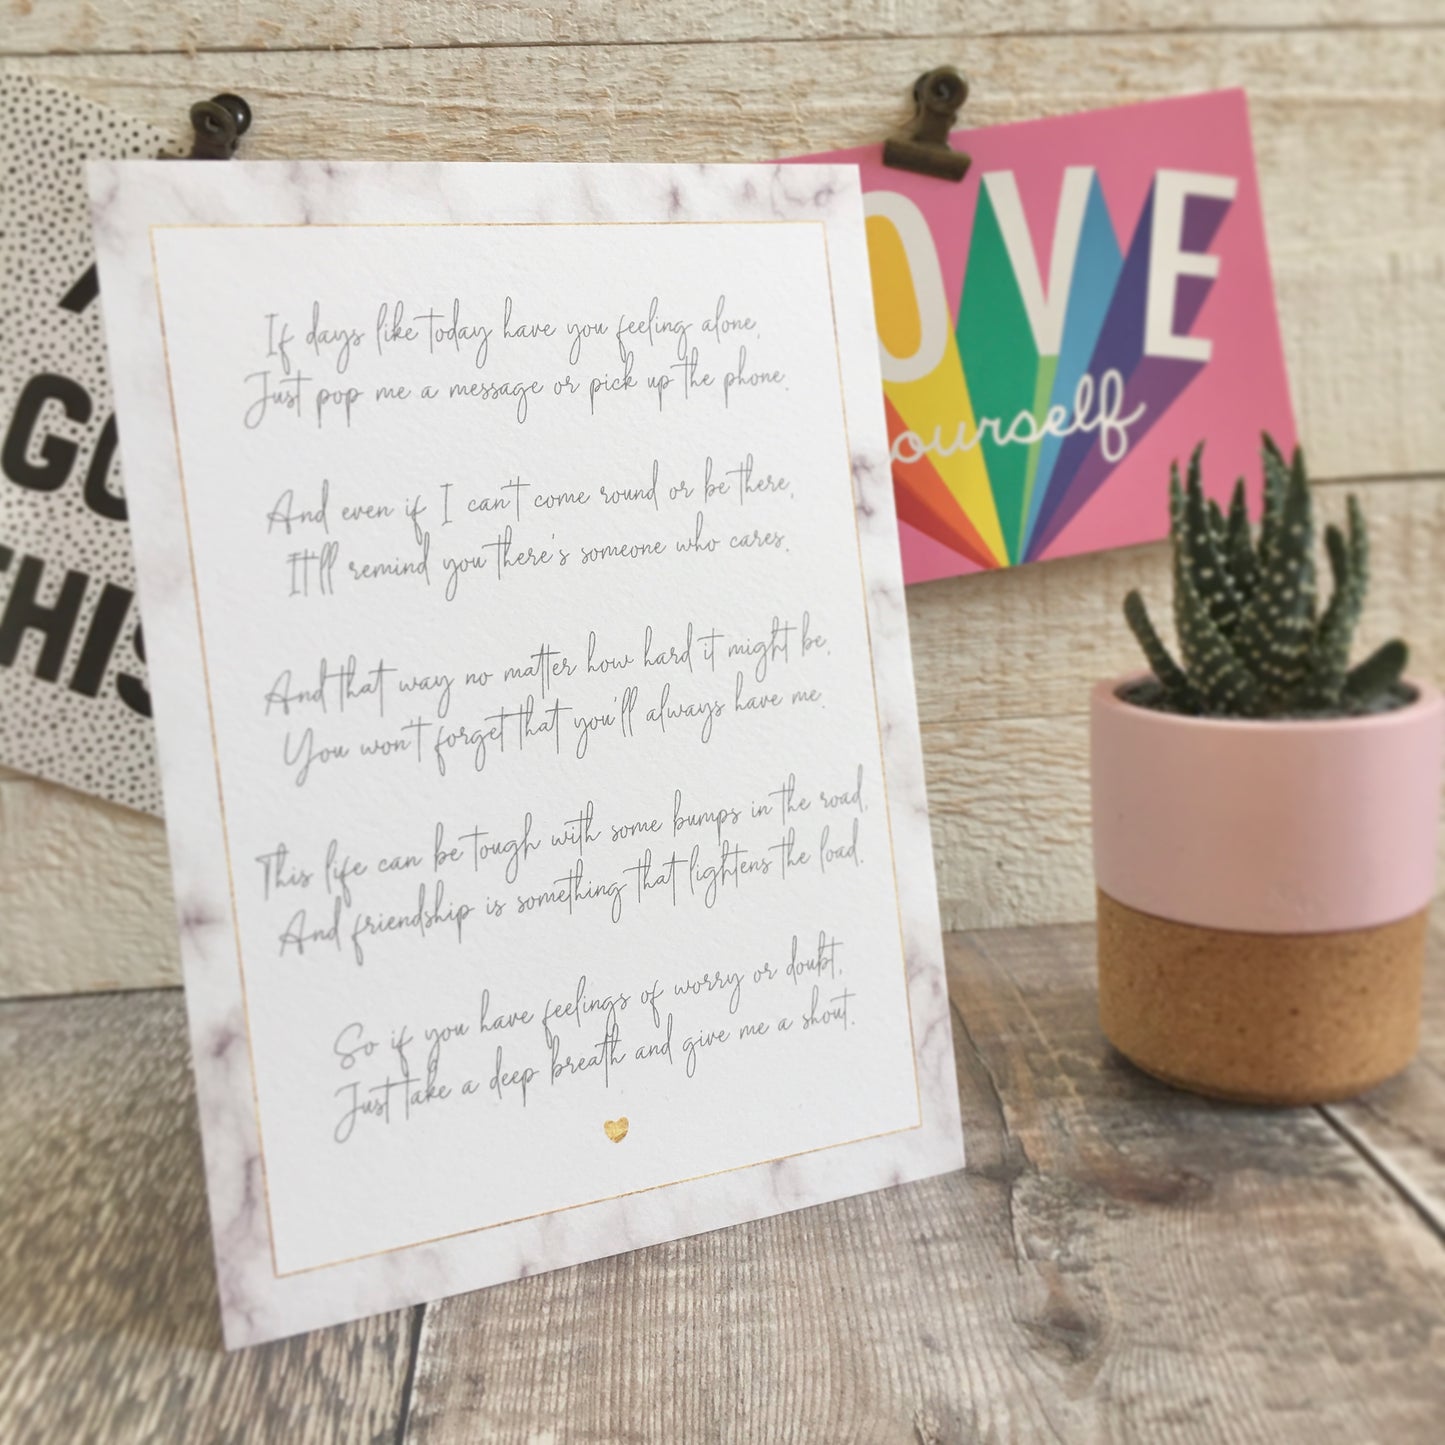 If days like today have you feeling alone,
Just pop me a message or pick up the phone.
And even if I can't come round or be there,
It'll remind you there's someone who cares.
And that way no matter how hard it might be,
You won't forget that you'll always have me.
This life can be tough with some bumps in the road,
And friendship is something that lightens the load.
So if you have feelings of worry or doubt,
Just take a deep breath and give me a shout.
OVE
ourself
GO
THIS